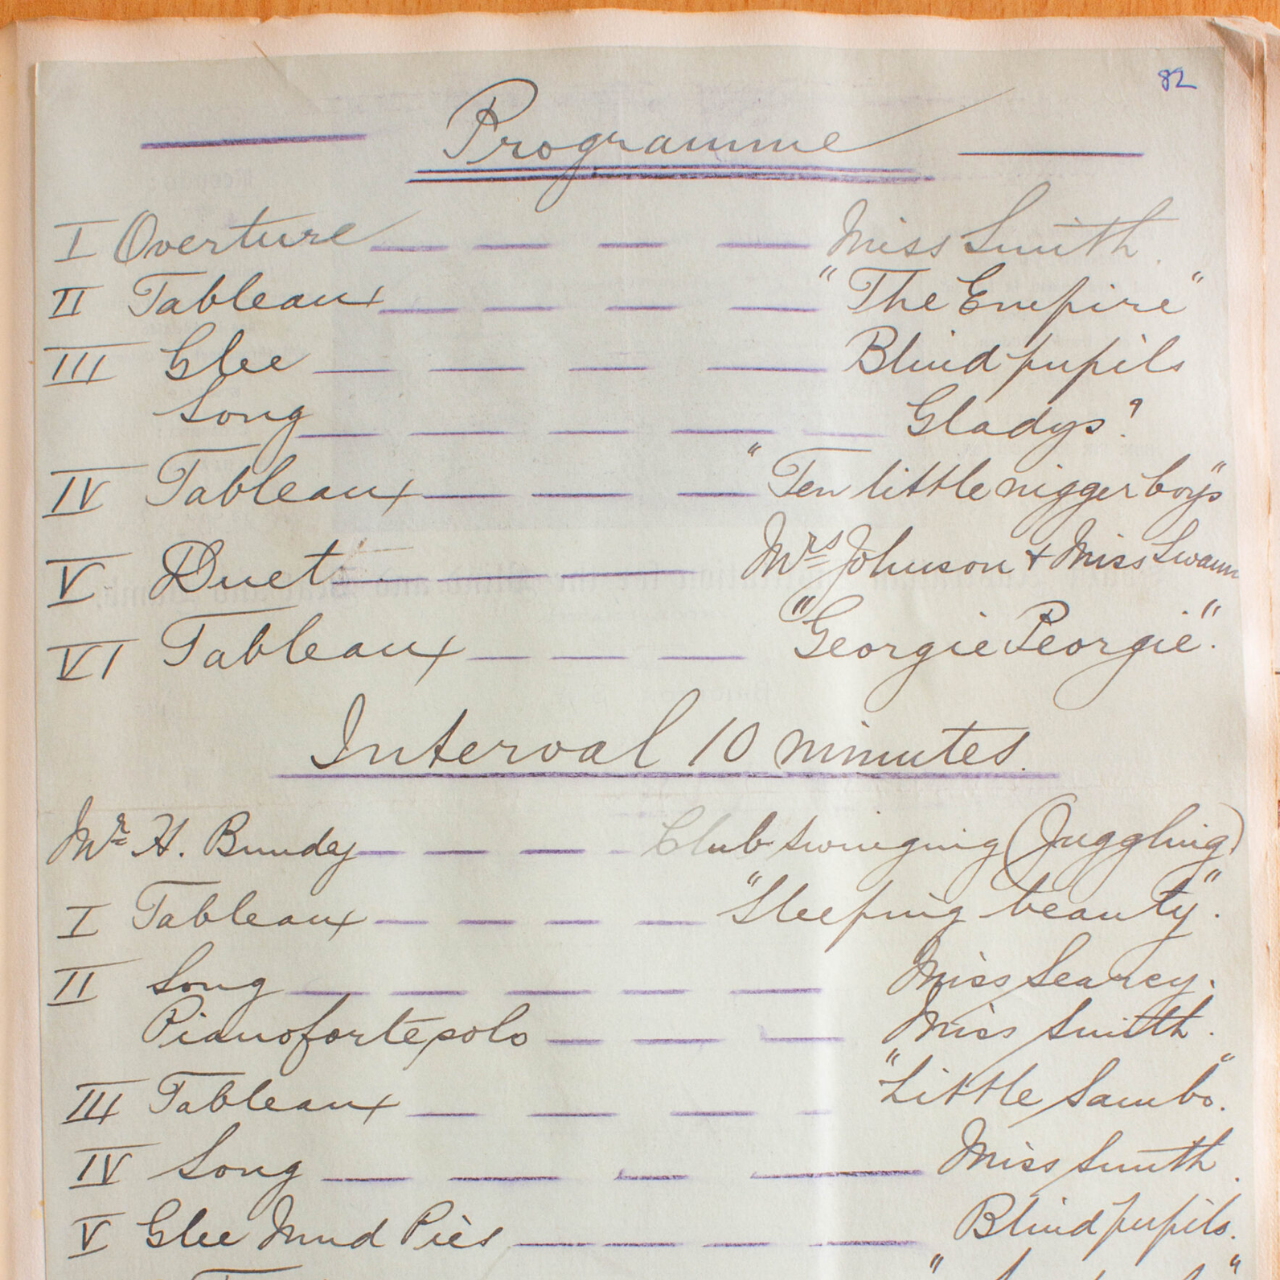 82
Programme
I Overture Miss Smith.
II Tableaux "The Empire"
III Glee Blind pupils
Song Gladys?
IV Tableaux "Ten little nigger boys"
V Duet Mrs Johnson + Miss Swann
VI Tableaux "Georgie Peorgie".
Interval 10 minutes.
Mr H. Bundey Club swinging (Juggling)
I Tableaux "Sleeping beauty".
II Song Miss Searcy.
Pianoforte solo Miss Smith.
III Tableaux "Little Sambo".
IV Song Miss Smith.
V Glee Mud Pies Blind pupils.